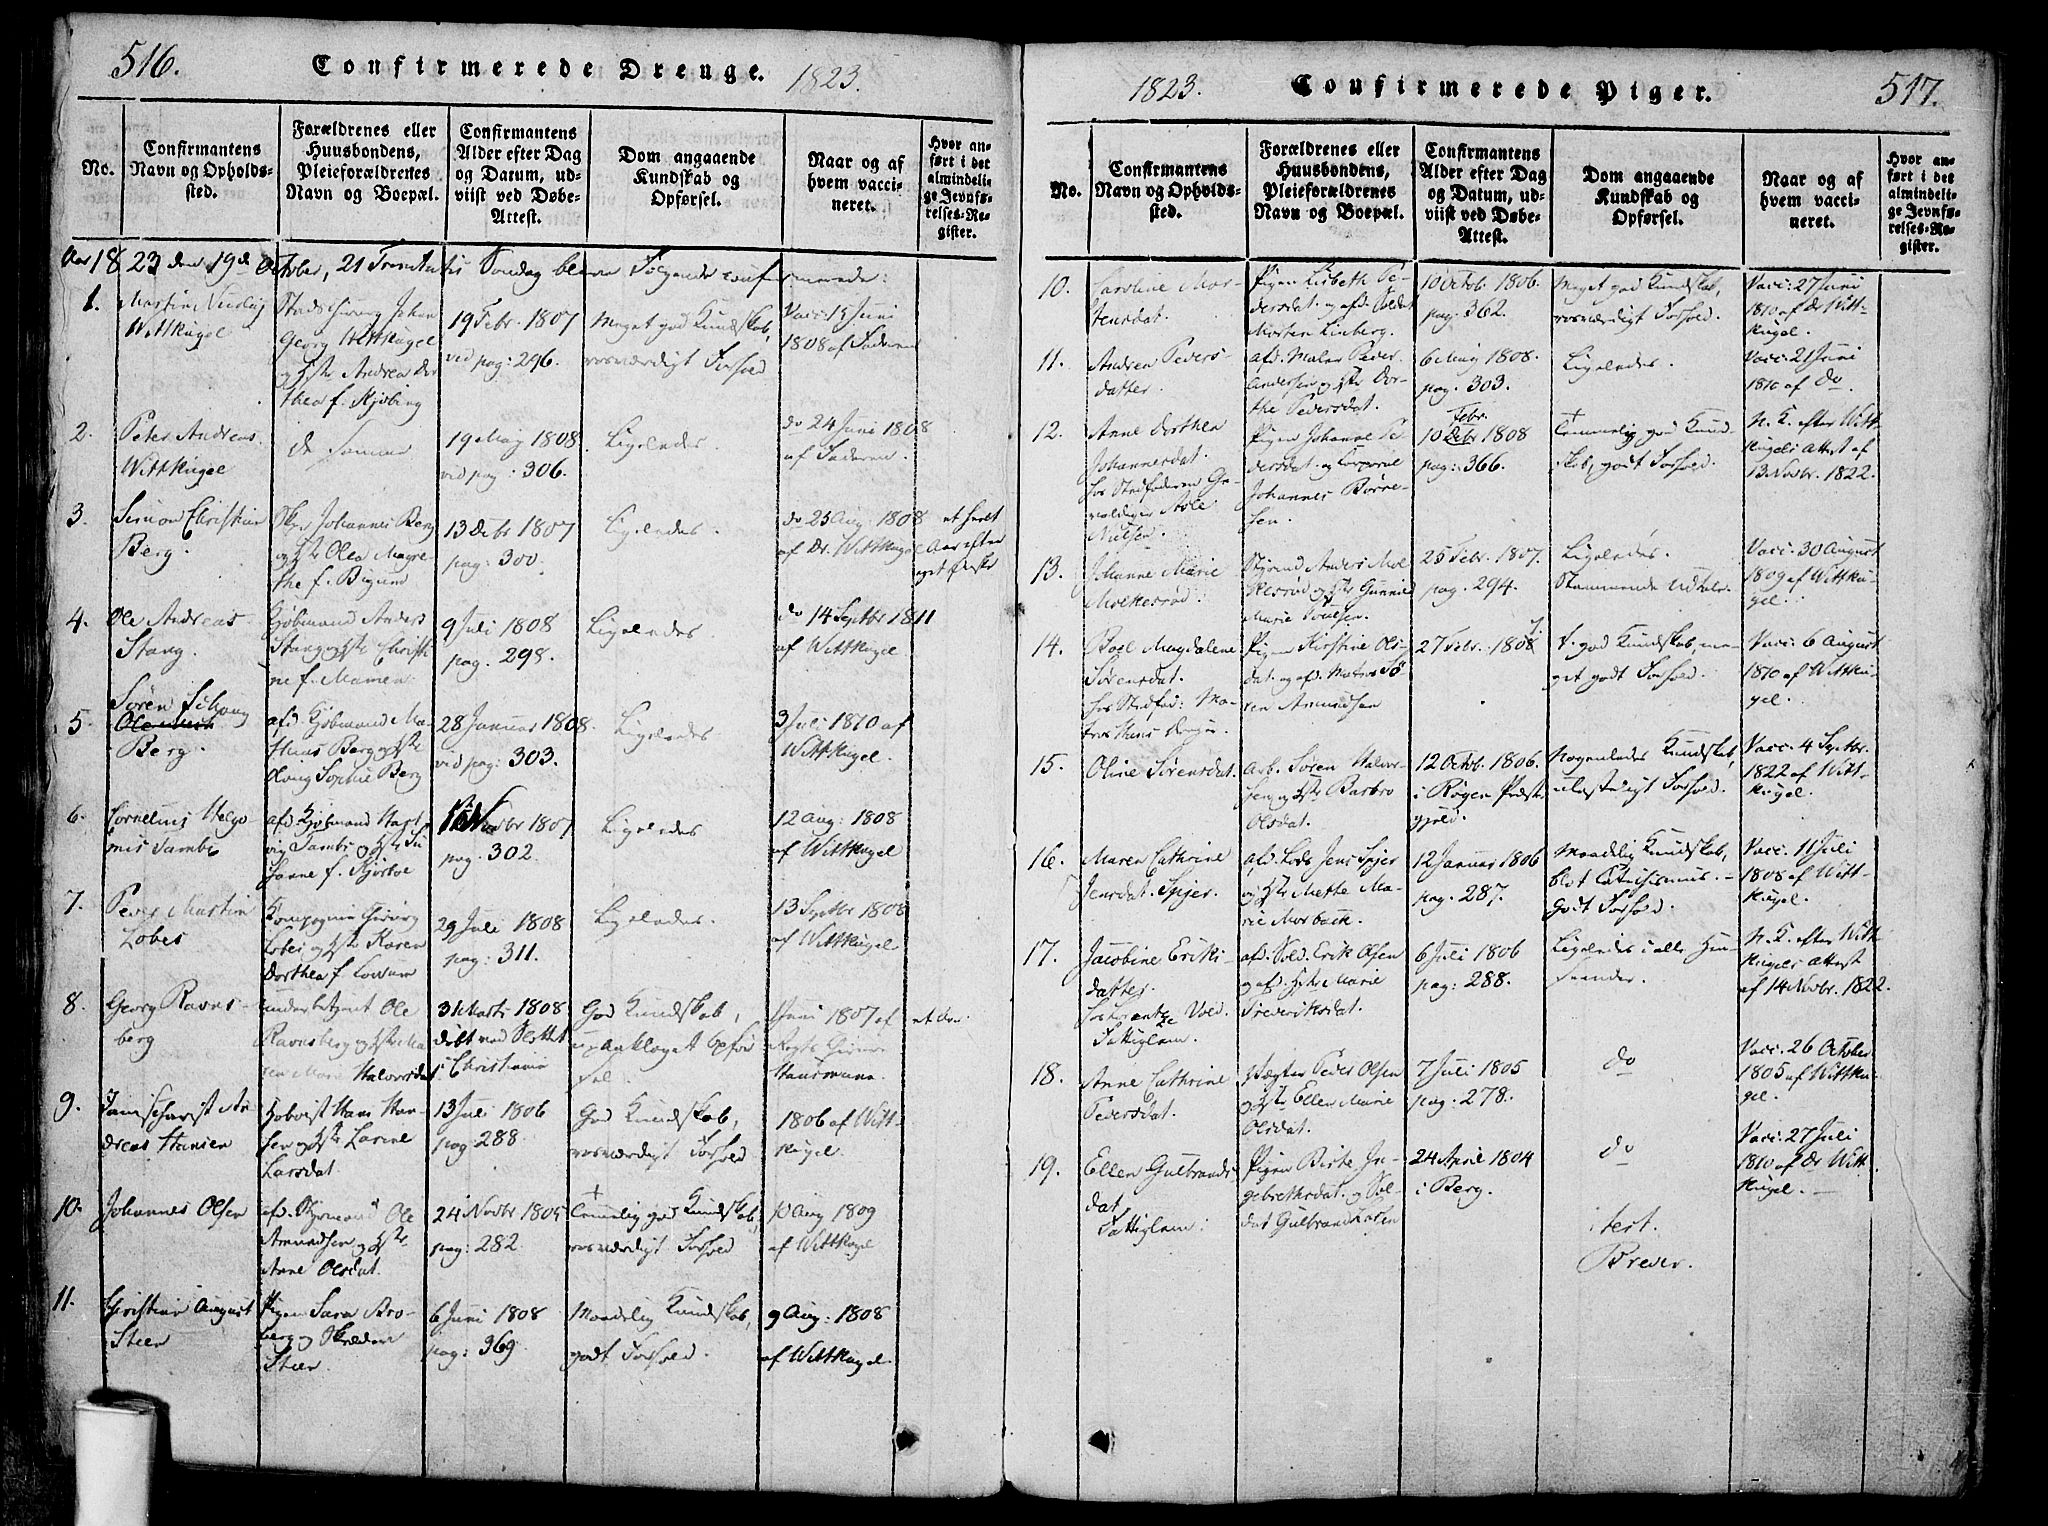 516.
Confirmerede Drenge.
1823.
No.
Confirmantens
Navn og Opholds-
sted.
Forældrenes eller
Huusbondens,
Pleieforældrenes
Navn og Boepæl.
Confirmantens
Alder efter Dag
og Datum, ud-
viist ved Døbe-
Attest.
Dom angaaende
Kundskab og
Opførsel.
Naar og af
hvem vacci-
neret.
Hvor an-
ført i det
almindeli-
ge Jevnfø-
relses-Re-
gister.
Aar 1823 den 19de October, 21 Trinitatis Søndag bleve Følgende confirmerede:
1.
Wittkugel
Georg Wittkugel
og Hstr Andrea Dor
thea f. Kjøbing
19 Febr. 1807
ved pag: 296.
Meget god Kundskab,
rosværdigt Forhold
Vacc: 15 Juni
1808 af Faderen
2.
Peter Andreas
Wittkugel
de samme
19 Maj 1808
vid pag: 306.
Ligeledes.
do 24 Juni 1808
af Faderen
3.
Simon Christian
Berg.
Johannes Berg
og Hstr Olea Magre-
the f. Bigum
13 Debr 1807
pag: 300.
Ligeledes.
do 23 Aug. 1808
af Dr. Wittkugel
4.
Ole Andreas
Stang.
Kjøbmand Anders
Stang og Hstr Christi
ne f. Mamen
9 Juli 1808
pag. 298.
Ligeledes
do 14 Septbr 1811
af Wittkugel
5.
Søren Schou
Berg.
afd Kjøbmand Ma-
thias Berg og Hstr
Sophie Berg
28 Januar 1808.
vid pag: 303.
Ligeledes
3 Juli 1810 af
Wittkugel.
6.
Cornelius Helgo-
nius Tambs
afd. Kjøbmand Hart
vig Tambs og Hstr Su
sanne f.
Novbr 1807
pag. 302.
Ligeledes
12 Aug: 1808
af Wittkugel
7.
Peder Martin
Lobes
Lobes og Hstr Karen
Dorthea f.
29 Juli 1808
pag: 311.
Ligeledes.
13 Septbr 1808
af Wittkugel
8.
Georg Ravns-
berg
underbetjent Ole
Ravnsberg og Hstr Ma-
ren Marie Halvorsdat.
31 Marts 1808
døbt ved Slottet
i Christiania
God Kundskab,
upaaklaget Opfør
sel
Juni 1807 af
9.
dreas Hansen
Hans Han-
sen og Hstr Larine
Larsdat.
13 Juli 1806
pag: 288.
God Kundskab,
rosværdigt Forhold
1806 af Witt-
kugel.
10.
Johannes Olsen
afd. Styrmand Ole
Amundsen og Hstr
Anne Olsdat.
24 Novbr 1805
pag: 282.
Temmelig god Kundskab,
rosværdigt Forhold
10 Aug 1809
af Wittkugel
11.
Christian August
Steen
Pigen Sara Bro-
berg og Skræder
Steen.
6 Juni 1808
pag: 369
Maadelig Kundskab,
godt Forhold.
9 Aug: 1808
af Wittkugel
1823.
Confirmerede Piger.
517.
No.
Confirmantens
Navn og Opholds-
sted.
Forældrenes eller
Huusbondens,
Pleieforældrenes
Navn og Boepæl.
Confirmantens
Alder efter Dag
og Datum, ud-
viist ved Døbe-
Attest.
Dom angaaende
Kundskab og
Opførsel.
Naar og af
hvem vacci-
neret.
Hvor an-
ført i det
almindeli-
ge Jevnfø-
relses-Re-
gister.
10.
Caroline Mor-
tensdat.
Pigen Lisbeth Pe-
dersdat. og afd. Soldat
Morten Linberg.
10 Octob. 1806.
pag. 362.
Meget god Kundskab,
rosværdigt Forhold.
Vacc: 27 Juni
1810 af Dr Witt-
kugel.
11.
Andrea Peders-
datter.
afd. Maler Peder
Andersen og Hstr Dor-
the Pedersdat.
6 Maj 1808.
pag. 303.
Ligeledes.
Vacc: 21 Juni
1810 af do
12.
Anne Dorthea
Johannesdat.
hos Stedfaderen Ge-
valdiger Asle
Nielsen.
Pigen Johanne Pe-
dersdat. og Corporal
Johannes Børre-
sen.
Febr.
10 Debr 1808
pag: 366.
Temmelig god Kund-
skab, godt Forhold.
N. K. efter Witt-
kugels Attest af
13 Novbr. 1822.
13.
Johanne Marie
Molkesrød.
Styrmd Anders Mol-
kesrød og Hstr Gunnil
Marie Poulsen.
25 Febr. 1807.
pag. 294.
Ligeledes.
Stammende Udtale.
Vacc: 30 August
1809 af Wittku-
gel.
14.
Boel Magdalene
Sørensdat.
hos Stedfad: Ma-
tros Hans
Pigen Kirstine Ols-
dat. og afd. Matros Sø-
ren Amundsen
27 Febr. 1808
T. god Kundskab, me-
get godt Forhold.
Vacc: 6 August
1810 af Wittku-
gel.
15.
Oline Sørensdat.
arb. Søren Halvor-
sen og Hstr Barbro
Olsdat.
12 Octob. 1806.
i Røgen Præste
gjeld.
Nogenledes Kundskab,
ulasteligt Forhold.
Vacc. 4 Septbr.
1822 af Witt-
kugel.
16.
Maren Cathrine
Jensdat. Spjer.
afd. Lods Jens Spjer
og Hstr Mette Ma-
rie Morback.
12 Januar 1806
pag. 287.
Maadelig Kundskab,
blot Catechismus. -
Godt Forhold.
Vacc. 11 Juli
1808 af Witt-
kugel.
17.
Jacobine Eriks-
datter.
Fattiglem.
afd. Sold. Erik Olsen
og afd. Hstr Marie
Frederiksdat.
6 Juli 1806
pag: 288.
Ligeledes i alle Hen-
seender.
N. K. efter Witt
kugels Attest
af 14 Novbr. 1822.
18.
Anne Cathrine
Pedersdat.
Vægter Peder Olsen
og Hstr Ellen Marie
Olsdat.
7 Juli 1805
pag: 278.
do
Vacc. 26 October
1805 af Wittku-
gel.
19.
Ellen Gulbrands
dat
Fattiglem:
Pigen Birte In-
gebrethsdat. og Sol-
dat Gulbrand Larsen
24 April 1804
i Berg.
do
Vacc: 27 Juli
1810 af Dr Witt
kugel. -
test.
Breder.